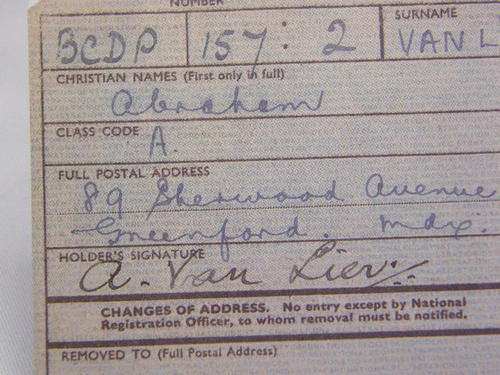 NUMBER SURNAME
BCDP 157: 2 VAN L
CHRISTIAN NAMES (First only in full)
Abraham
CLASS CODE A.
FULL POSTAL ADDRESS
89 Sherwood Avenue
Greenford. Mdx.
HOLDER'S SIGNATURE
A. Van Lier.
CHANGES OF ADDRESS. No entry except by National
Registration Officer, to whom removal must be notified.
REMOVED TO (Full Postal Address)